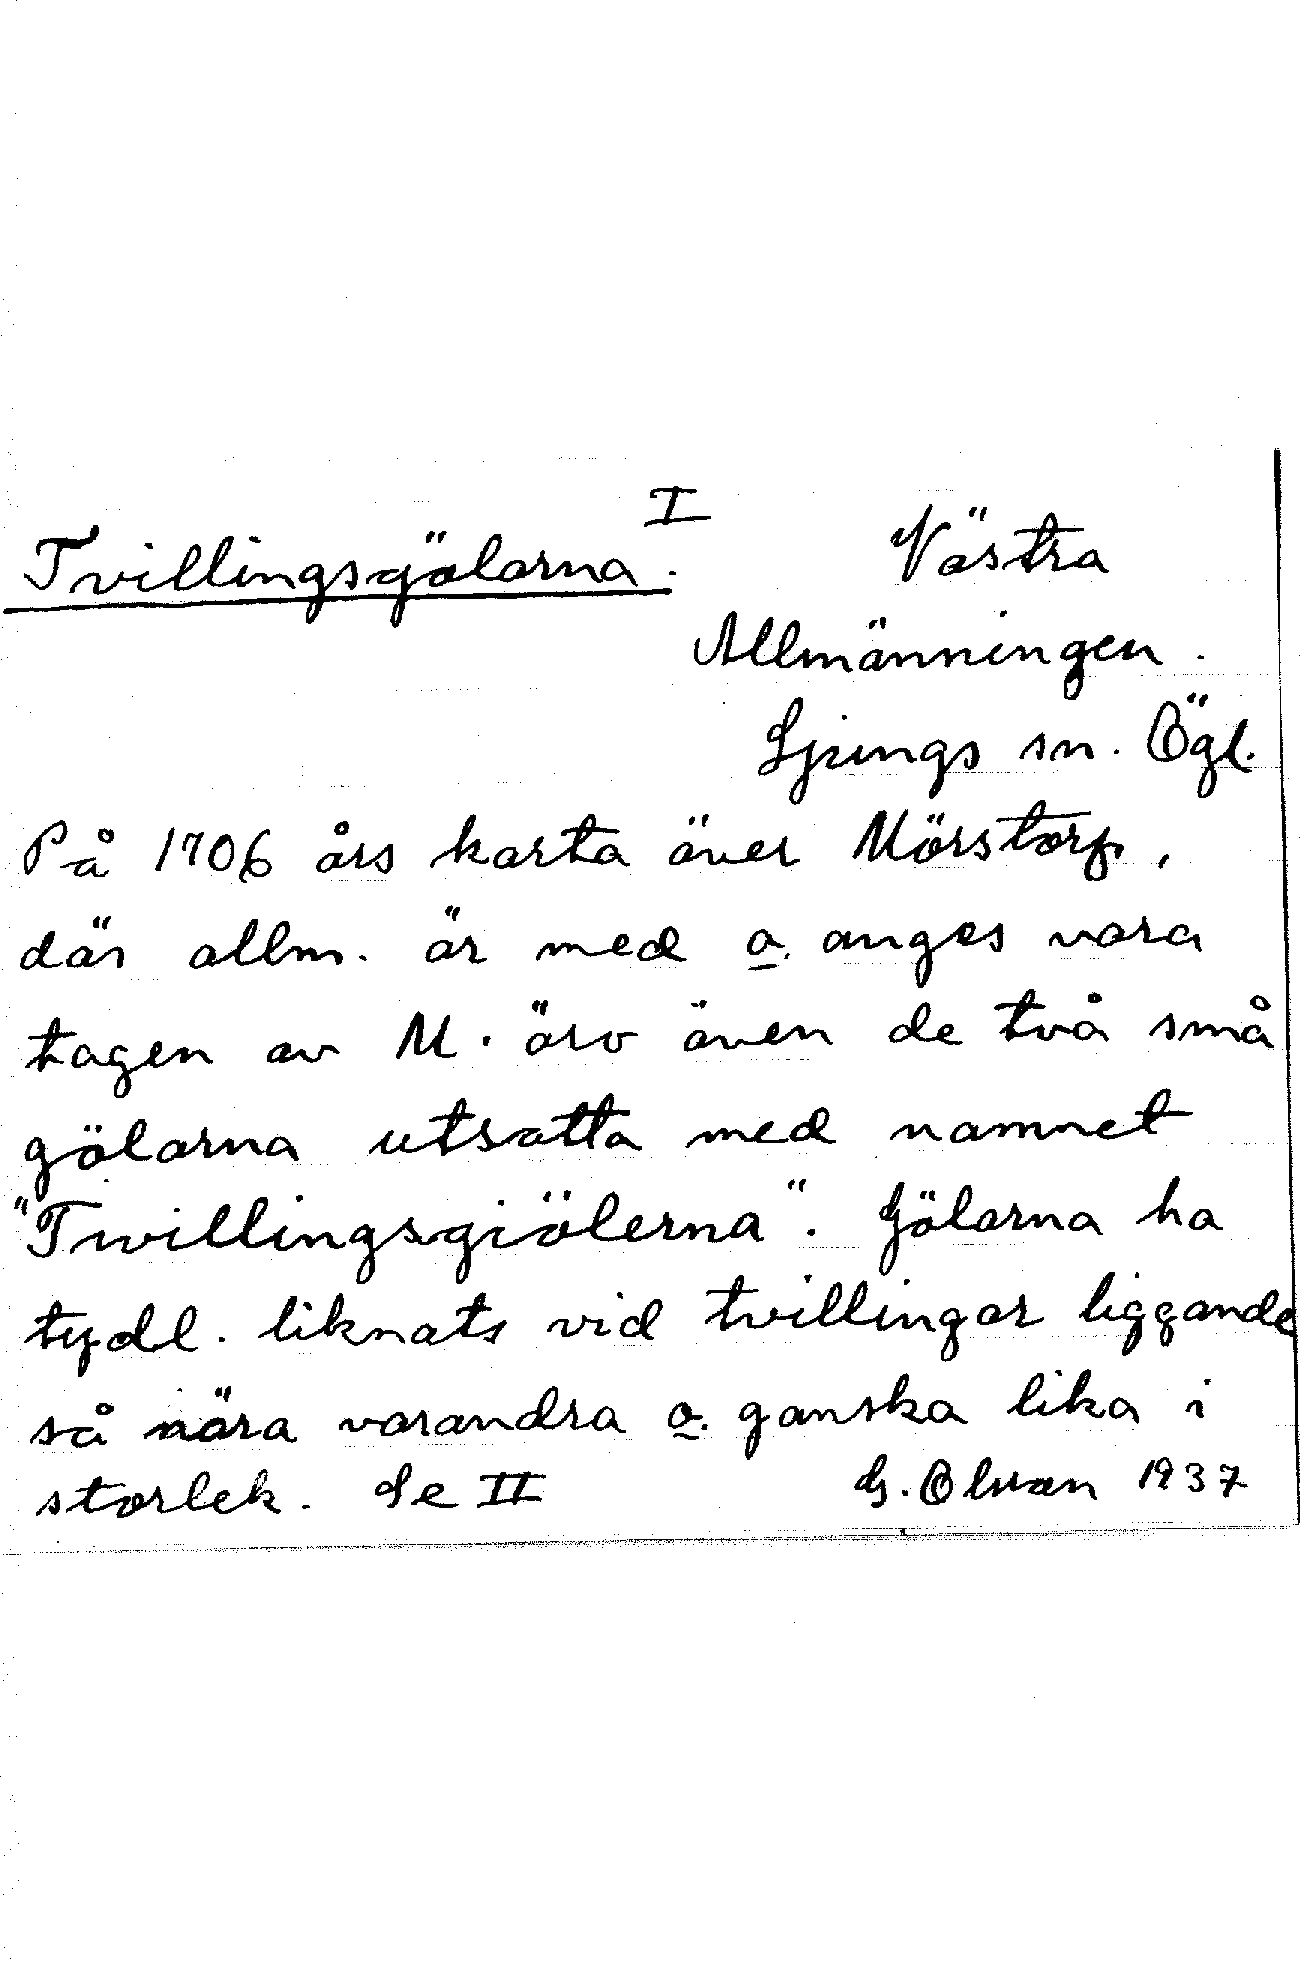 Tvillingsgölarna. I Västra
Allmänningen.
Ljungs sn. Ögl.
På 1706 års karta över Mörstorp,
där allm. är med o. anges vara
tagen av M. äro även de två små
gölarna utsatta med namnet
"Twillingsgiölerna". Gölarna ha
tydl. liknats vid tvillingar liggande
så nära varandra o. ganska lika i
storlek. Se II G. Olvan 1937